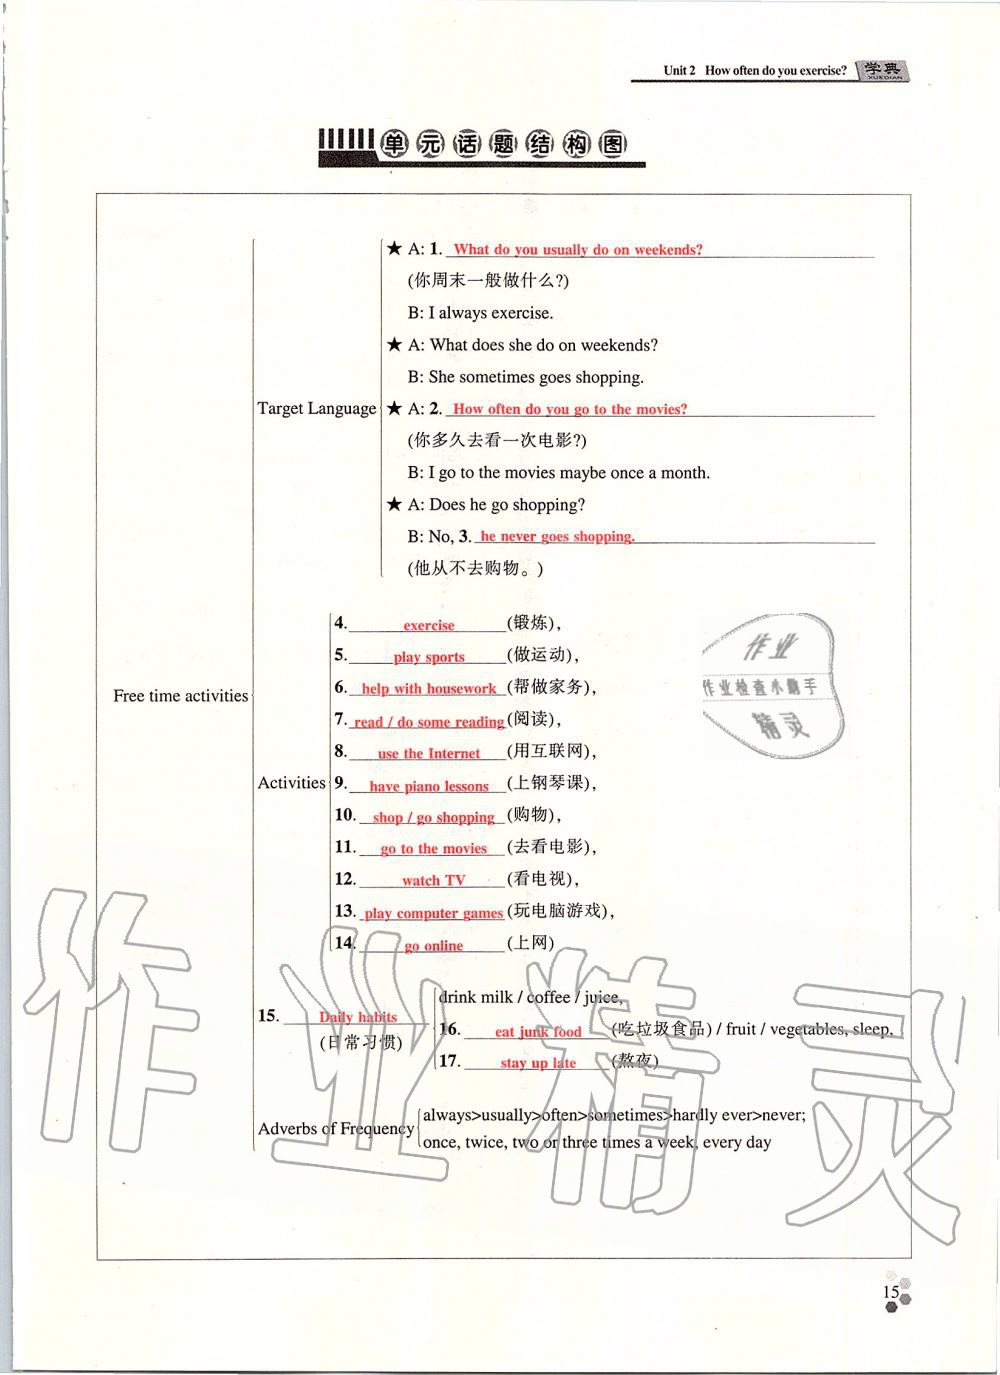 Unit 2 How often do you exercise? 学典
XUEDIAN
单元话题结构图
★ A: 1. What do you usually do on weekends?
(你周末一般做什么?)
B: I always exercise.
★ A: What does she do on weekends?
B: She sometimes goes shopping.
Target Language
★ A: 2. How often do you go to the movies?
(你多久去看一次电影?)
B: I go to the movies maybe once a month.
★ A: Does he go shopping?
B: No, 3. he never goes shopping.
(他从不去购物。)
Free time activities
Activities
4. exercise (锻炼),
5. play sports (做运动),
6. help with housework (帮做家务),
7. read / do some reading (阅读),
8. use the Internet (用互联网),
9. have piano lessons (上钢琴课),
10. shop / go shopping (购物),
11. go to the movies (去看电影),
12. watch TV (看电视),
13. play computer games (玩电脑游戏),
14. go online (上网)
15. Daily habits
(日常习惯)
drink milk / coffee / juice,
16. eat junk food (吃垃圾食品) / fruit / vegetables, sleep,
17. stay up late (熬夜)
Adverbs of Frequency
always>usually>often>sometimes>hardly ever>never;
once, twice, two or three times a week, every day
作业
作业检查小助手
精灵
作业精灵
15